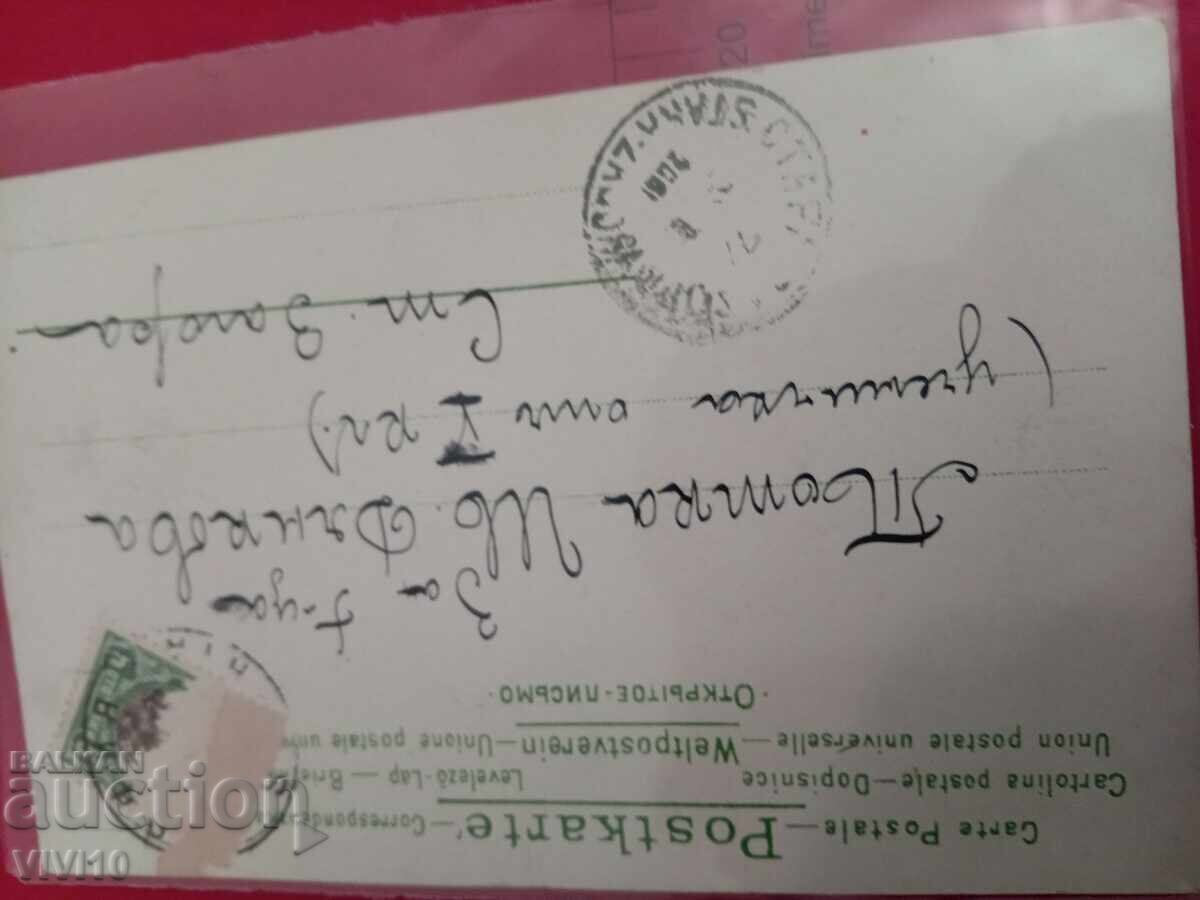 Carte Postale — Postkarte — Correspondenz
Cartolina postale — Dopisnice Levelező-Lap — Brief
Union postale universelle — Weltpostverein — Unione postale
· ОТКРЫТОЕ-ПИСЬМО ·
За г-ца
Тотка Ив. Дянкова
(ученичка отъ V кл.)
Ст. Загора
СТАРА
BALKAN
auction
VIVI10
20